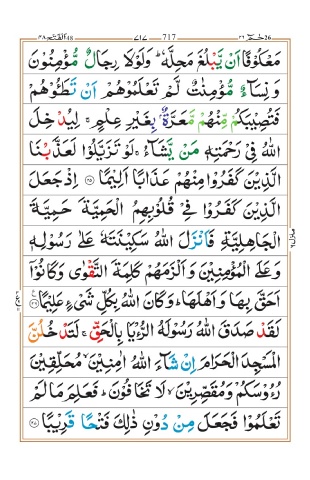 الفتح ٤٨ ٧١٧ 717 حٰمٓ ٢٦
مَعْكُوْفًا اَنْ يَّبْلُغَ مَحِلَّهٗ ؕ وَلَوْلَا رِجَالٌ مُّؤْمِنُوْنَ
وَ نِسَآءٌ مُّؤْمِنٰتٌ لَّمْ تَعْلَمُوْهُمْ اَنْ تَطَـُٔوْهُمْ
فَتُصِيْبَكُمْ مِّنْهُمْ مَّعَرَّةٌۢ بِغَيْرِ عِلْمٍ ۚ لِيُدْخِلَ
اللّٰهُ فِيْ رَحْمَتِهٖ مَنْ يَّشَآءُ ۚ لَوْ تَزَيَّلُوْا لَعَذَّبْنَا
الَّذِيْنَ كَفَرُوْا مِنْهُمْ عَذَابًا اَلِيْمًا ﴿۲۵﴾ اِذْ جَعَلَ
الَّذِيْنَ كَفَرُوْا فِيْ قُلُوْبِهِمُ الْحَمِيَّةَ حَمِيَّةَ
الْجَاهِلِيَّةِ فَاَنْزَلَ اللّٰهُ سَكِيْنَتَهٗ عَلٰى رَسُوْلِهٖ
وَ عَلَى الْمُؤْمِنِيْنَ وَ اَلْزَمَهُمْ كَلِمَةَ التَّقْوٰى وَ كَانُوْۤا
اَحَقَّ بِهَا وَ اَهْلَهَا ؕ وَ كَانَ اللّٰهُ بِكُلِّ شَيْءٍ عَلِيْمًا ﴿۲۶﴾
لَقَدْ صَدَقَ اللّٰهُ رَسُوْلَهُ الرُّءْيَا بِالْحَقِّ ۚ لَتَدْخُلُنَّ
الْمَسْجِدَ الْحَرَامَ اِنْ شَآءَ اللّٰهُ اٰمِنِيْنَ ۙ مُحَلِّقِيْنَ
رُءُوْسَكُمْ وَ مُقَصِّرِيْنَ ۙ لَا تَخَافُوْنَ ؕ فَعَلِمَ مَا لَمْ
تَعْلَمُوْا فَجَعَلَ مِنْ دُوْنِ ذٰلِكَ فَتْحًا قَرِيْبًا ﴿۲۷﴾